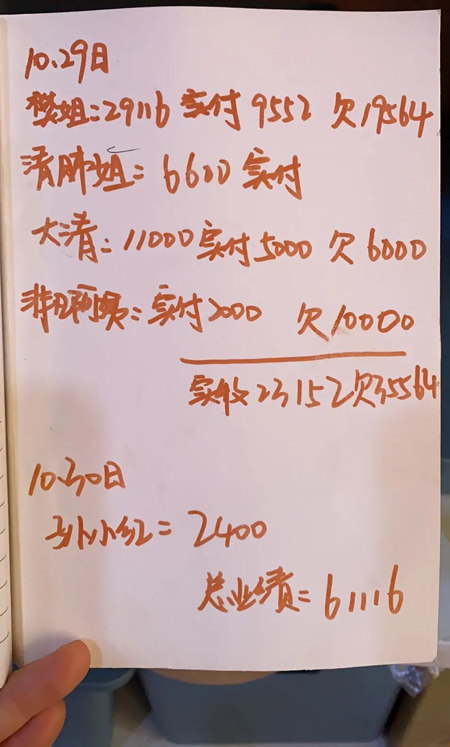 10.29日
樊姐:29116 实付9552 欠19564
清肺姐:6600实付
大清:11000实付5000 欠6000
实付2000 欠10000
实收23152欠35564
10.30日
孙小红=2400
总业绩=61116